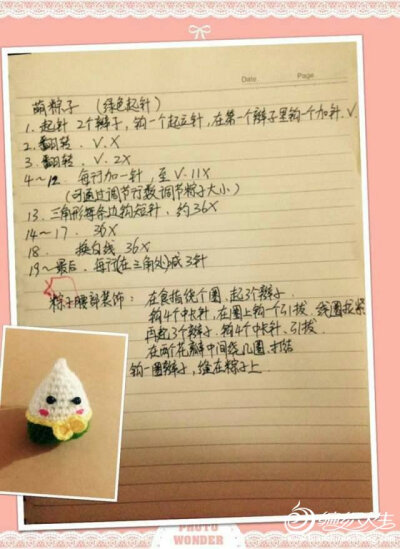 Date Page
萌粽子 （绿色起针）
1. 起针 2个辫子，钩一个起立针，在第一个辫子里钩一个加针.V.
2. 翻转. V.X
3. 翻转. V. 2X
4～12. 每行加一针，至V.11X
（可通过调节行数调节粽子大小）
13. 三角形每条边钩短针，约36X
14～17. 36X
18. 换白线 36X
19～最后. 每行(在三角处)减3针
粽子腰部装饰： 在食指绕个圈，起3个辫子.
钩4个中长针，在圈上钩一个引拔. 线圈拉紧
再起3个辫子. 钩4个中长针、引拔.
在两个花瓣中间绕几圈.打结
钩一圈辫子，缝在粽子上.
PHOTO
WONDER
编织人生